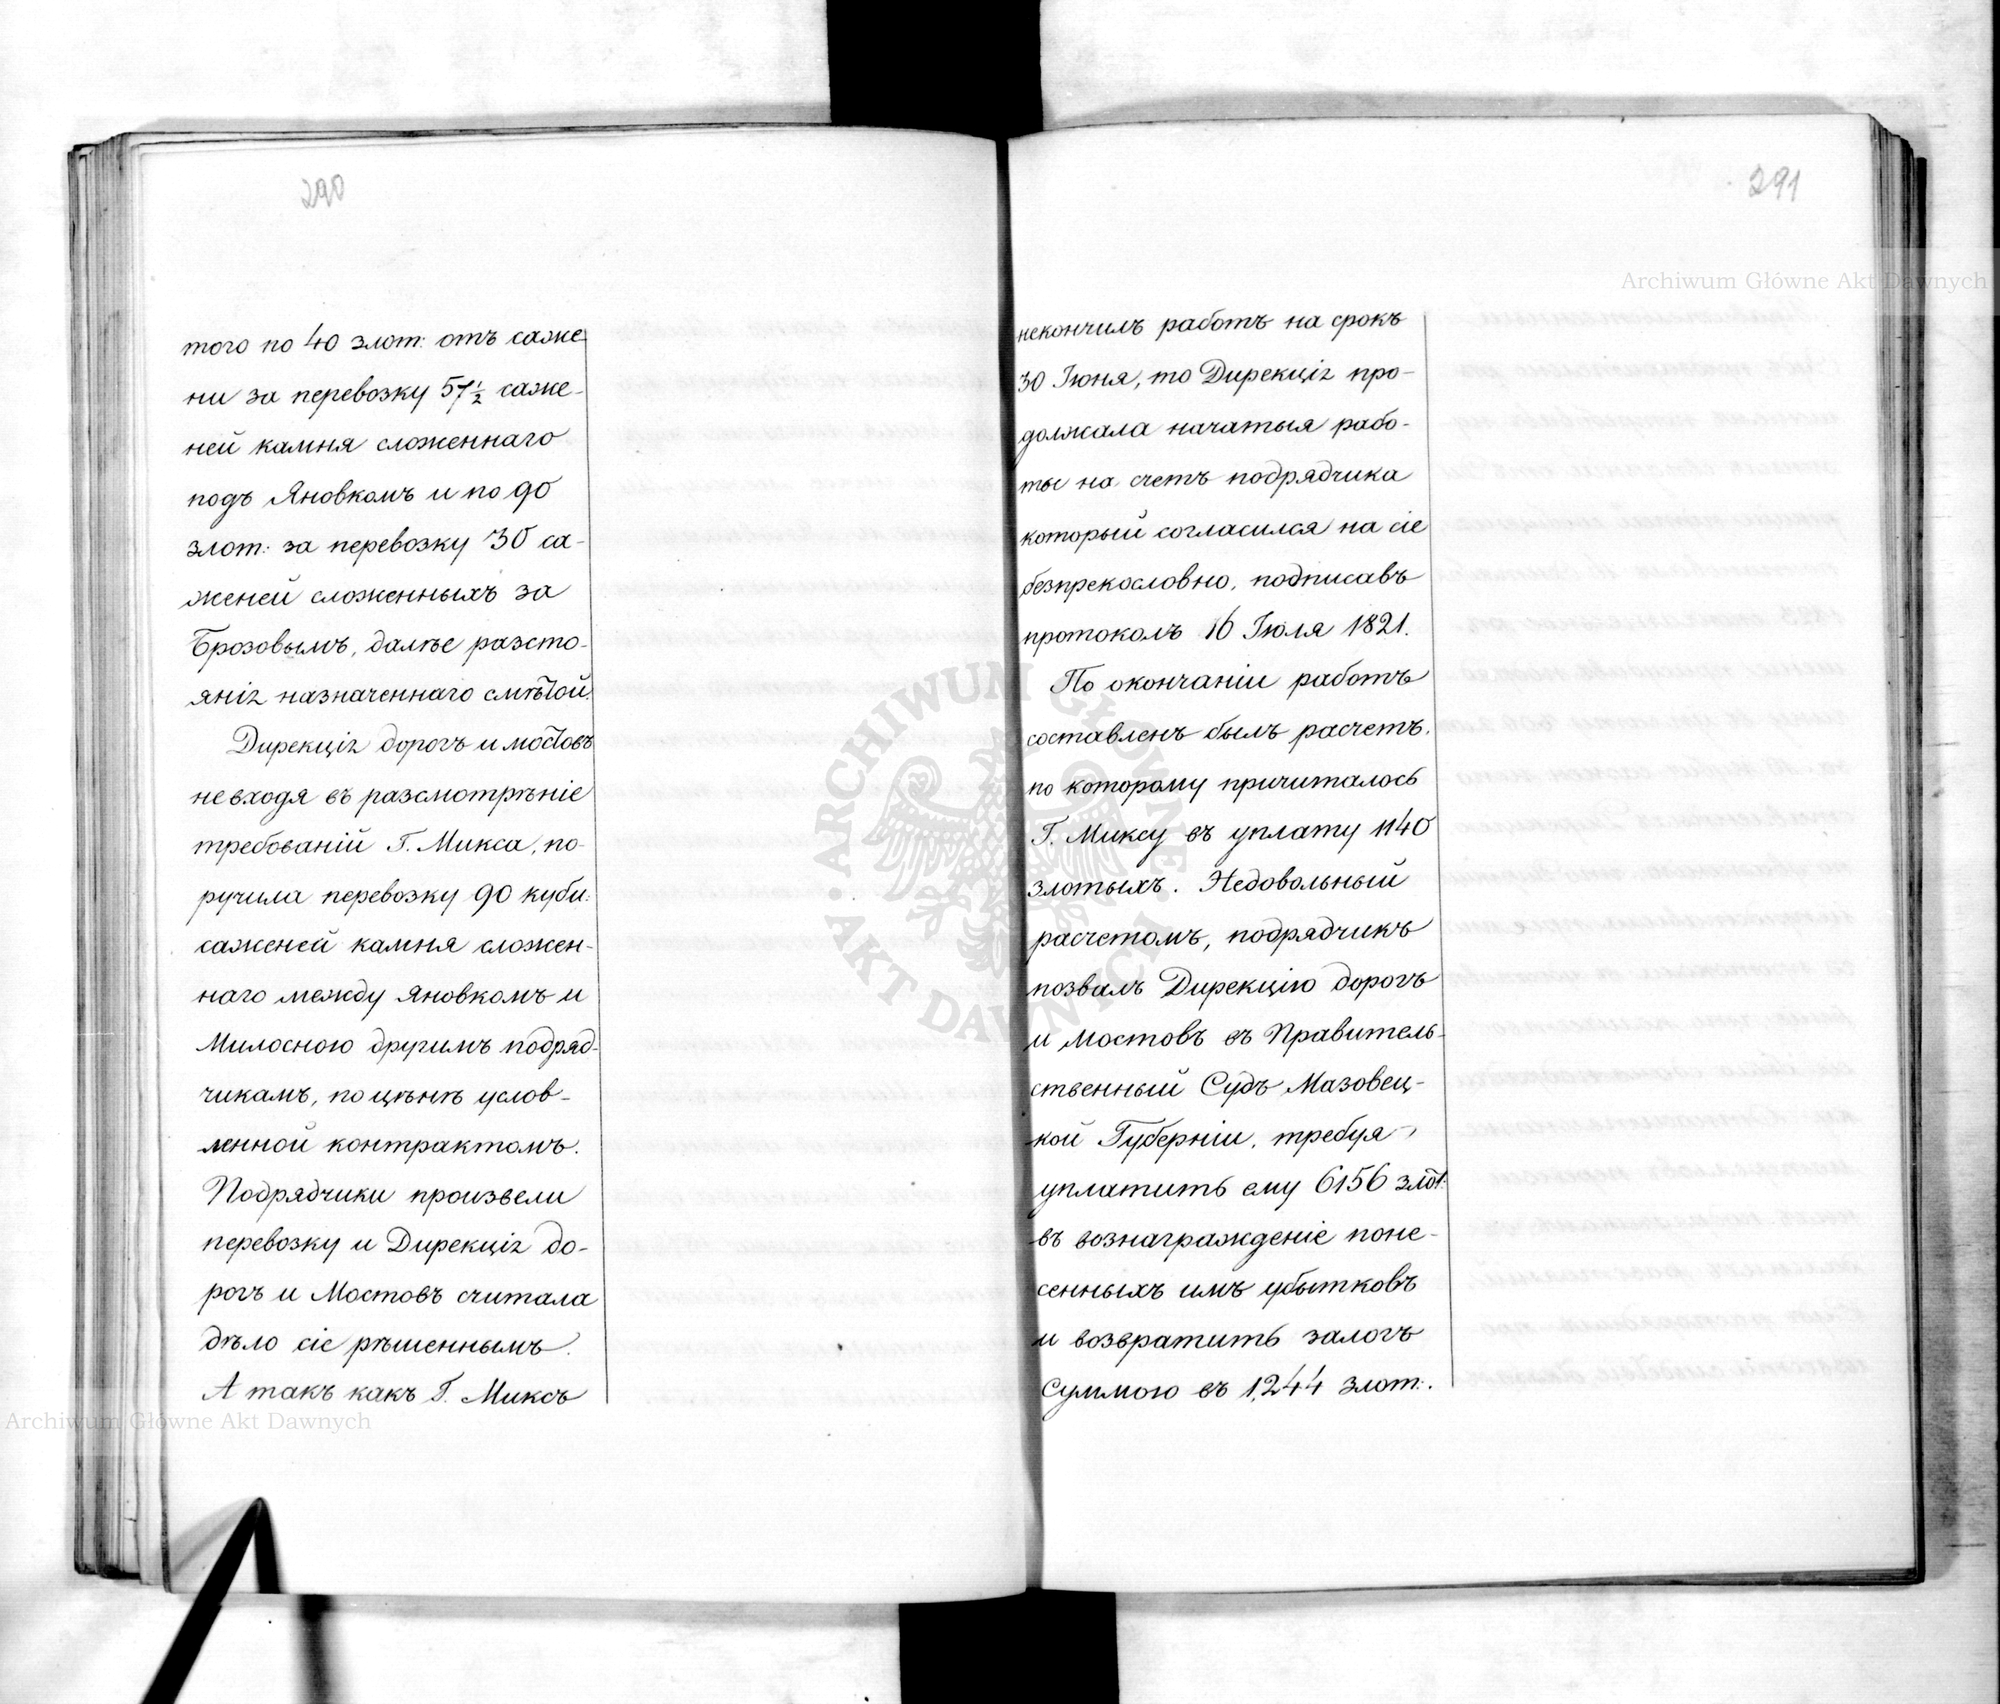 290
того по 40 злот: отъ саже
ни за перевозку 57 1/2 саже-
ней камня сложеннаго
подъ Яновкомъ и по 90
злот: за перевозку 30 са-
женей сложенныхъ за
Брозовымъ, далѣе разсто-
янія назначеннаго смѣтой.
Дирекція дорогъ и мостовъ
не входя въ разсмотрѣніе
требованій Г. Микса, по-
ручила перевозку 90 куби:
саженей камня сложен-
наго между Яновкомъ и
Милосною другимъ подряд-
чикамъ, по цѣнѣ услов-
ленной контрактомъ.
Подрядчики произвели
перевозку и Дирекція до-
рогъ и Мостовъ считала
дѣло сіе рѣшеннымъ.
А такъ какъ Г. Миксъ
291
некончилъ работъ на срокъ
30 Іюня, то Дирекція про-
должала начатыя рабо-
ты на счетъ подрядчика
который согласился на сіе
безпрекословно, подписавъ
протоколъ 16 Іюля 1821.
По окончаніи работъ
составленъ былъ расчетъ,
по которому причиталось
Г. Миксу въ уплату 1140
злотыхъ. Недовольный
расчетомъ, подрядчикъ
позвалъ Дирекцію дорогъ
и мостовъ въ Правитель-
ственный Судъ Мазовец-
кой Губерніи, требуя
уплатить ему 6156 злот:
въ вознагражденіе поне-
сенныхъ имъ убытковъ
и возвратить залогъ
суммою въ 1,244 злот:.
Archiwum Główne Akt Dawnych
Archiwum Główne Akt Dawnych
ARCHIWUM GŁÓWNE AKT DAWNYCH